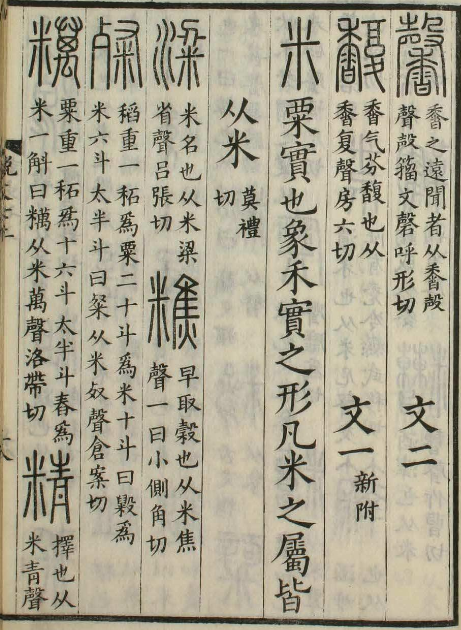 馨 香之遠聞者从香殸
聲殸籒文磬呼形切 文二
馥 香气芬馥也从
香复聲房六切 文一 新附
米 粟實也象禾實之形凡米之屬皆
从米 莫禮
切
粱 米名也从米梁
省聲吕張切
糕 早取穀也从米焦
聲一曰小側角切
粲 稻重一䄷爲粟二十斗爲米十斗曰毇爲
米六斗太半斗曰粲从米𣦼聲倉案切
𥽗 粟重一䄷爲十六斗太半斗舂爲
米一斛曰𥽗从米萬聲洛帶切
精 擇也从
米青聲